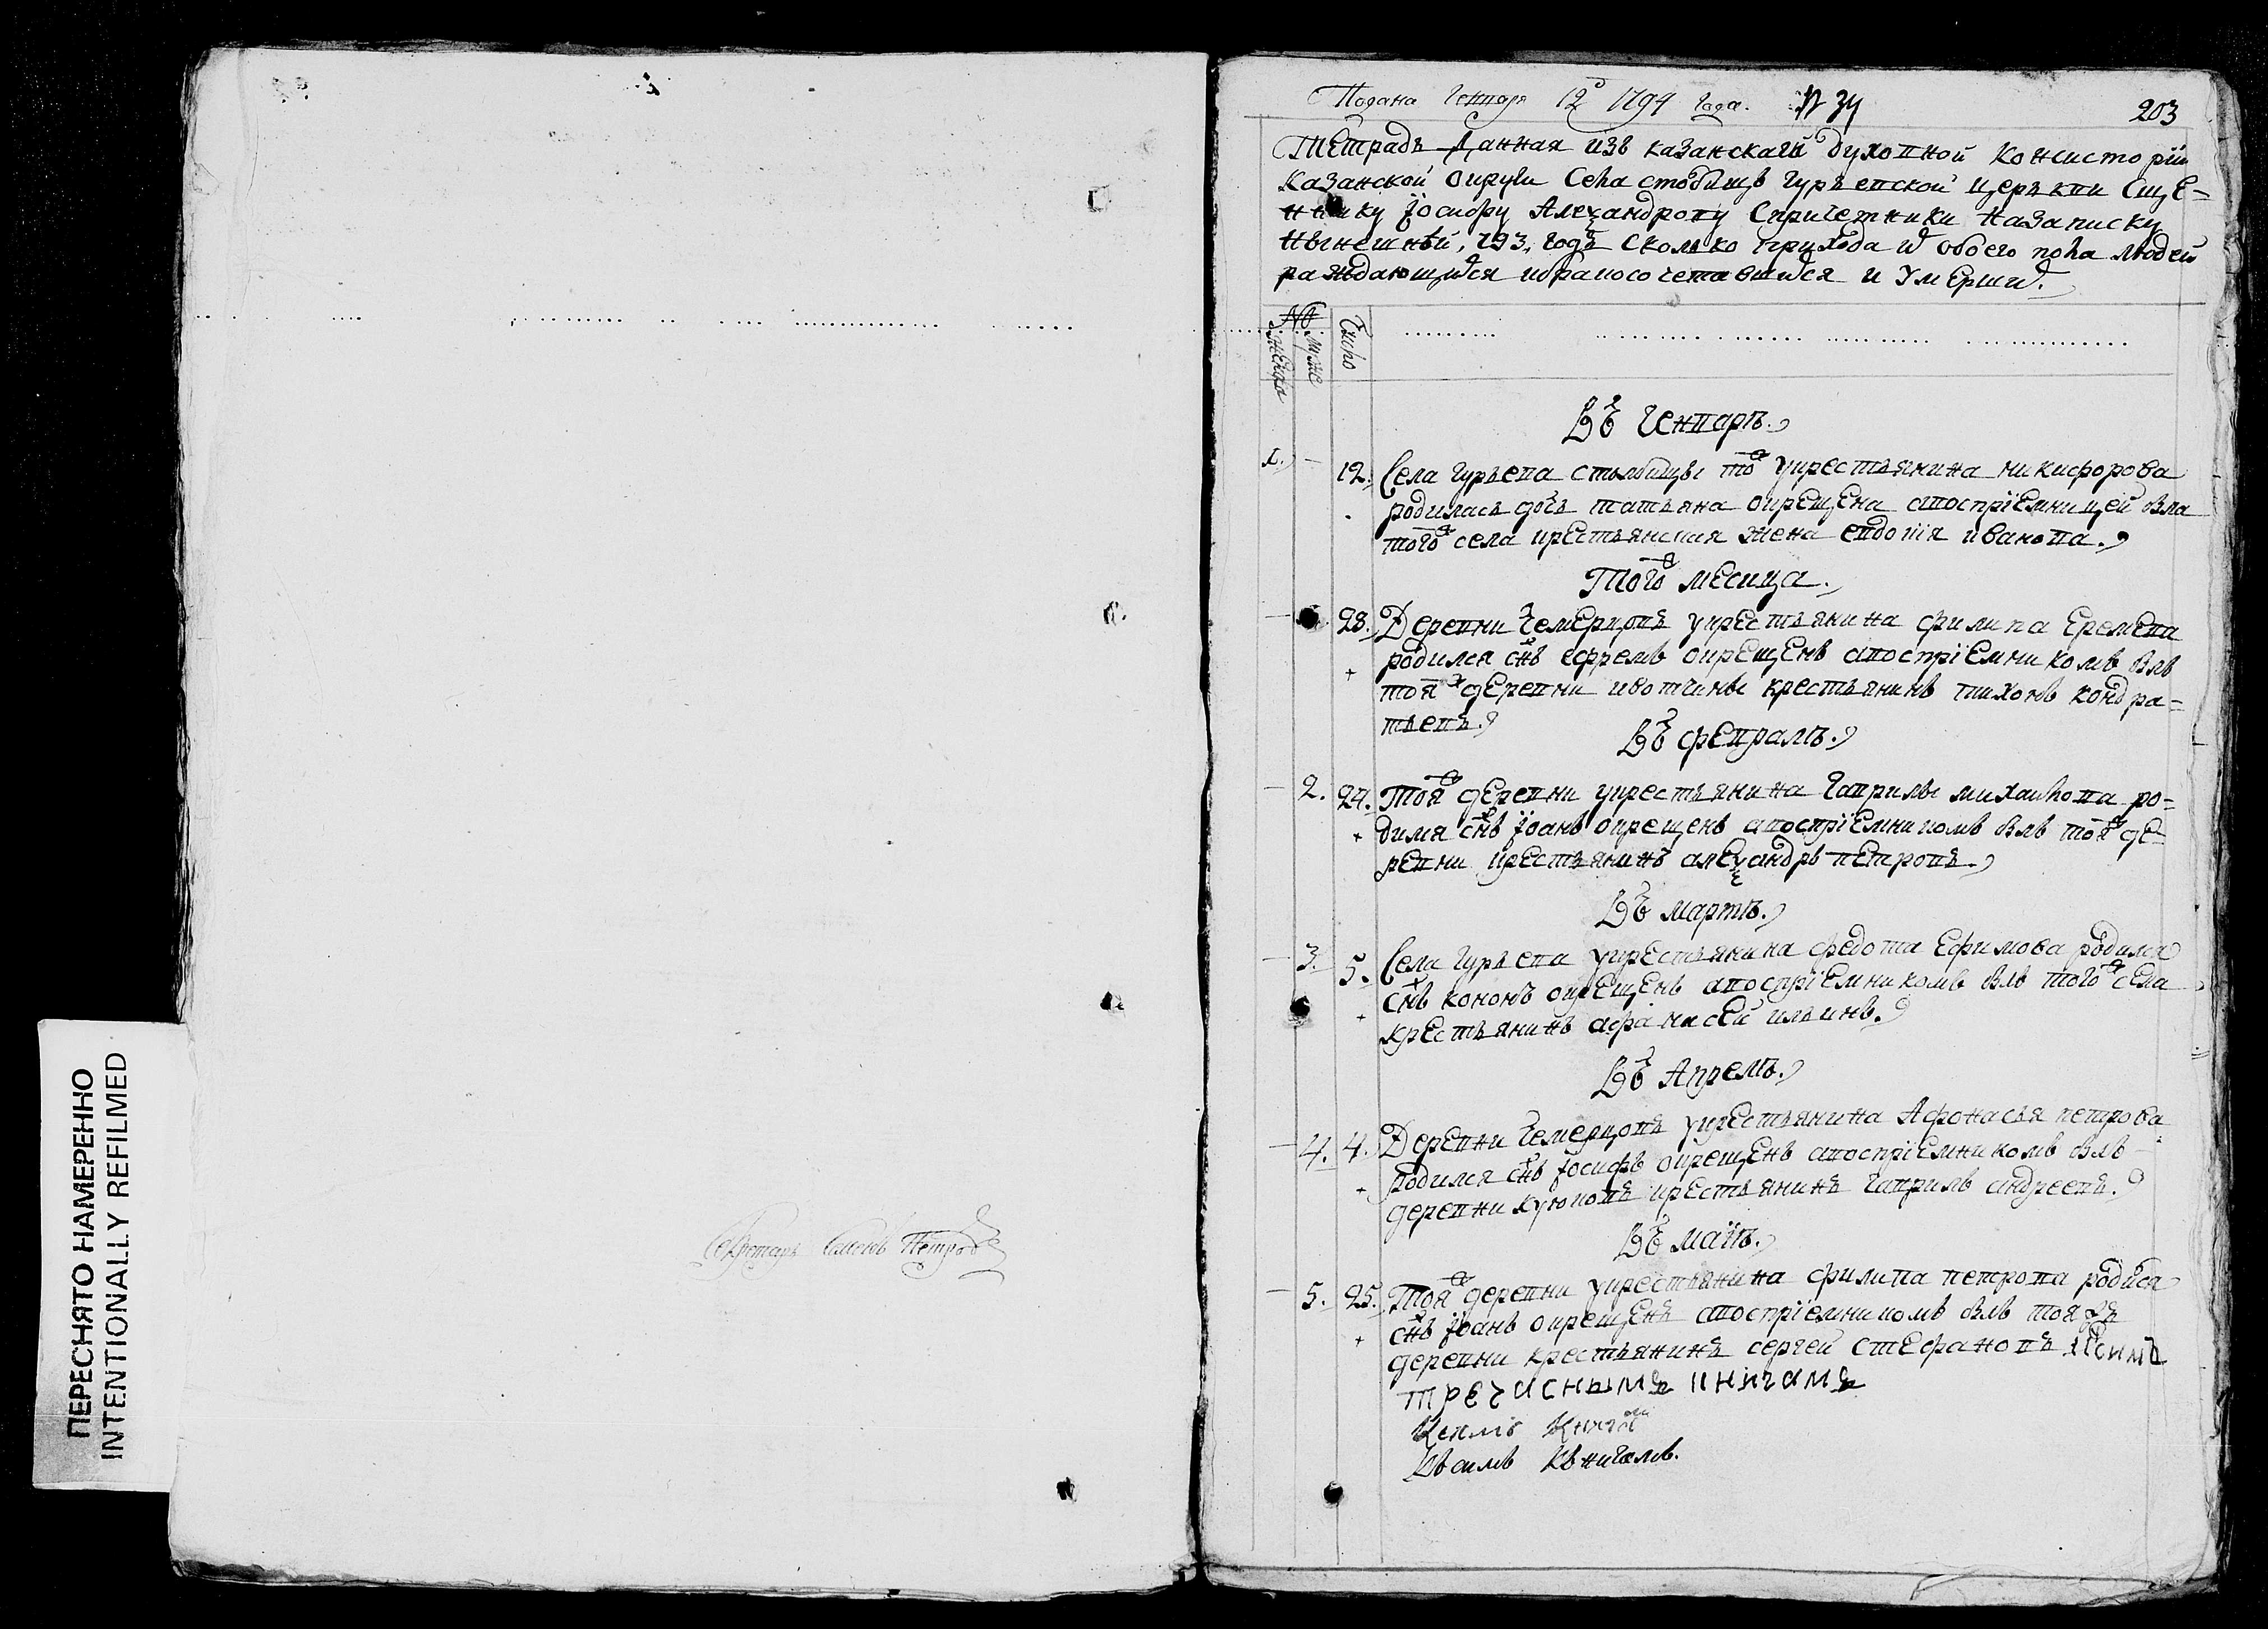 ПЕРЕСНЯТО НАМЕРЕННО
INTENTIONALLY REFILMED
Секретарь Петровъ
Подана Генваря 12г 1794 года. № 34
203
Тетрадь Данная изъ казанскагѡ духовной консисторїи
казанской округи села столбищъ гурьевской церькви Сще=
ннику Іосифу Алеѯандрову Спричетники на записку
Нынешнѣй, 793, годъ Сколько прихода ѿ обоего пола людей
раждающихся ибракосочетавшихся и Умерших.
№
женска
муже
Число
Въ Генварѣ.
1. – 12. Села гурьева столбищъ тож укрестьянина никифорова
родилась дочь татьяна окрещена авоспрїемницей была
тогож села крестьянския жена евдокїя иванова.
Тогож месица.
– 28. Деревни чемерцовъ укрестьянина филипа Еремева
родился снъ ефремъ окрещенъ авоспрїемникомъ былъ
тояж деревни ивотчины крестьянинъ тихонъ кондра=
тьевъ.
Въ февралѣ.
– 2. 24. Тояж деревни укрестьянина гаврилы михайлова ро=
дился снъ Іоанъ окрещенъ авоспрїемникомъ былъ тояж де
ревни крестьянинъ алеѯандръ петровъ.
Въ мартѣ.
– 3. 5. Села гурьева укрестьянина федота Ефимова родился
снъ кононъ окрещенъ авоспрїемникомъ былъ тогож села
крестьянинъ афанасей ильинъ.
Въ Апрелѣ.
– 4. 4. Деревни чемерцовъ укрестьянина Афонасья петрова
родился снъ Іосифъ окрещенъ авоспрїемникомъ былъ
деревни куюковъ крестьянинъ гаврилъ андреевъ.
Въ маїѣ.
– 5. 25. Тояж деревни укрестьянина филипа петрова родился
снъ Іоанъ окрещенъ авоспрїемникомъ былъ тоя жъ
деревни крестьянинъ сергей стефановъ Ксимъ
книгамъ
Къ симъ Книгам
Къ симъ Книгамъ.